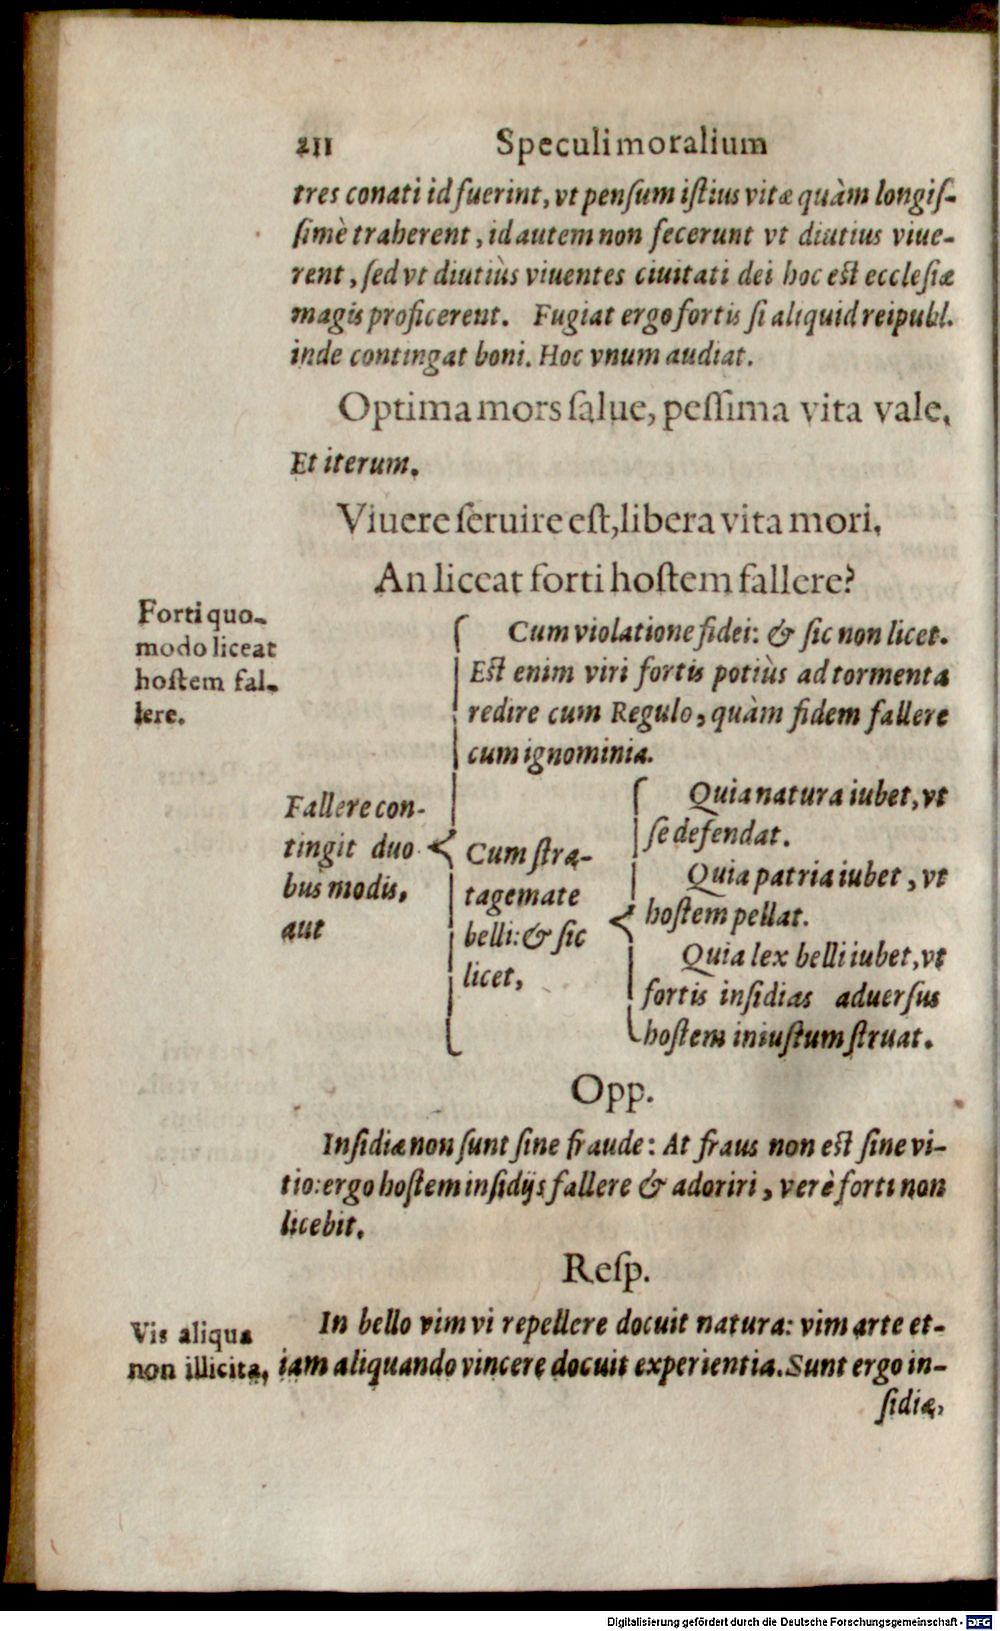 211 Speculi moralium
tres conati id fuerint, vt pensum istius vitæ quàm longis-
simè traherent, id autem non fecerunt vt diutius viue-
rent, sed vt diutiùs viuentes ciuitati dei hoc est ecclesiæ
magis proficerent. Fugiat ergo fortis si aliquid reipubl.
inde contingat boni. Hoc vnum audiat.
Optima mors salue, pessima vita vale.
Et iterum.
Viuere seruire est, libera vita mori.
An liceat forti hostem fallere?
Forti quo-
modo liceat
hostem fal-
lere.
Fallere con-
tingit duo
bus modis,
aut
Cum violatione fidei: & sic non licet.
Est enim viri fortis potiùs ad tormenta
redire cum Regulo, quàm fidem fallere
cum ignominia.
Cum stra-
tagemate
belli: & sic
licet,
Quia natura iubet, vt
se defendat.
Quia patria iubet, vt
hostem pellat.
Quia lex belli iubet, vt
fortis insidias aduersus
hostem iniustum struat.
Opp.
Insidiæ non sunt sine fraude: At fraus non est sine vi-
tio: ergo hostem insidijs fallere & adoriri, verè forti non
licebit.
Resp.
Vis aliqua
non illicita,
In bello vim vi repellere docuit natura: vim arte et-
iam aliquando vincere docuit experientia. Sunt ergo in-
sidiæ,
Digitalisierung gefördert durch die Deutsche Forschungsgemeinschaft - DFG